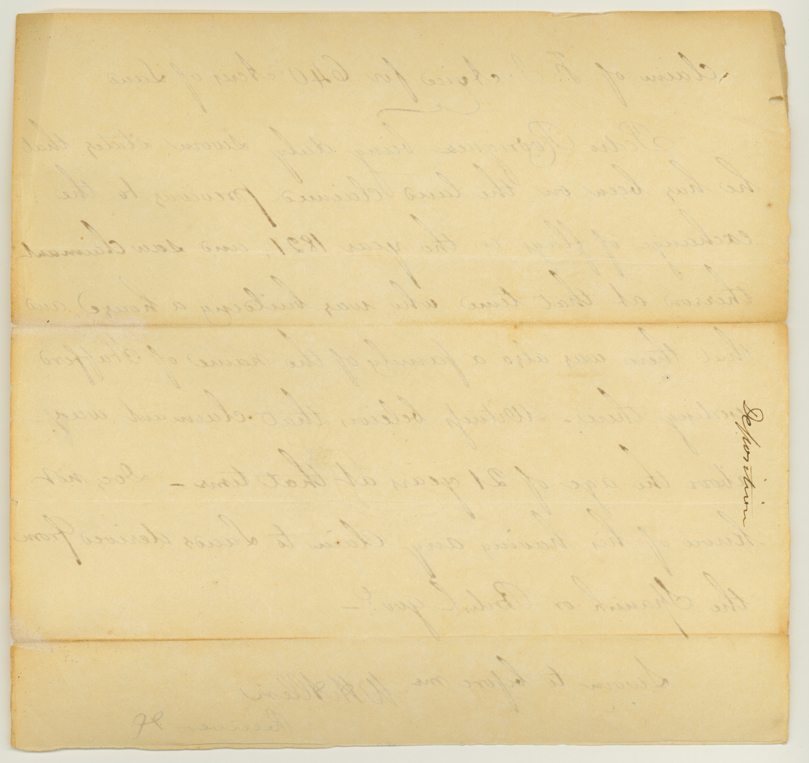 Deposition
Claim of F. J. Avice for 640 Acres of Land
Peter Rodrigues being duly Sworn states that
he has been on the land Claimed previous to the
exchange of flags in the year 1821, and saw Claimant
thereon at that time who was building a house and
that there was also a family of the name of Stafford
residing there. Witness believes that claimant was
above the age of 21 years at that time – Does not
know of his having any claim to Lands derived from
the Spanish or British govt. –
Sworn to before me W H Allen